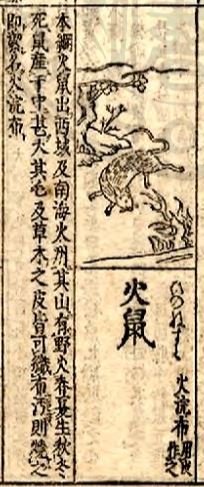 火鼠
ひのねすみ
火浣布 用皮作之
本綱火鼠出西域及南海火州其山有野火春夏生秋冬
死鼠産于中甚大其毛及草木之皮皆可織布汚則燒之
即潔名火浣布